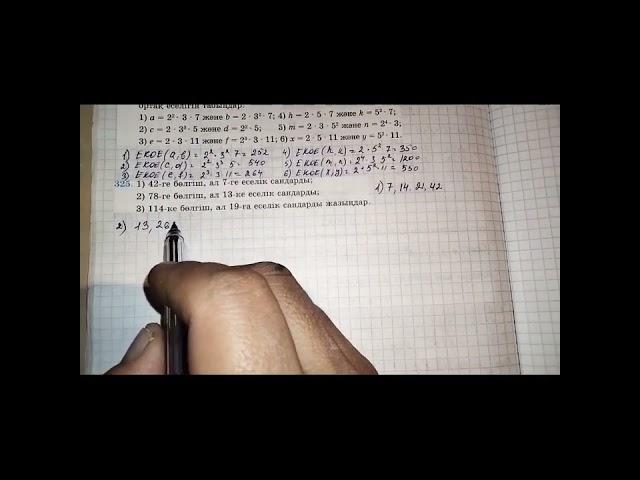 ортақ еселігін табыңдар:
1) a = 2² · 3 · 7 және b = 2 · 3² · 7; 4) h = 2 · 5 · 7 және k = 5² · 7;
2) c = 2 · 3³ · 5 және d = 2² · 5; 5) m = 2 · 3 · 5² және n = 2⁴ · 3;
3) e = 2 · 3 · 11 және f = 2³ · 3 · 11; 6) x = 2 · 5 · 11 және y = 5² · 11.
1) ЕКОЕ(a,b) = 2² · 3² · 7 = 252 4) ЕКОЕ(h,k) = 2 · 5² · 7 = 350
2) ЕКОЕ(c,d) = 2² · 3³ · 5 = 540 5) ЕКОЕ(m,n) = 2⁴ · 3 · 5² = 1200
3) ЕКОЕ(e,f) = 2³ · 3 · 11 = 264 6) ЕКОЕ(x,y) = 2 · 5² · 11 = 550
325. 1) 42-ге бөлгіш, ал 7-ге еселік сандарды; 1) 7, 14. 21, 42
2) 78-ге бөлгіш, ал 13-ке еселік сандарды;
3) 114-ке бөлгіш, ал 19-ға еселік сандарды жазыңдар.
2) 13, 26